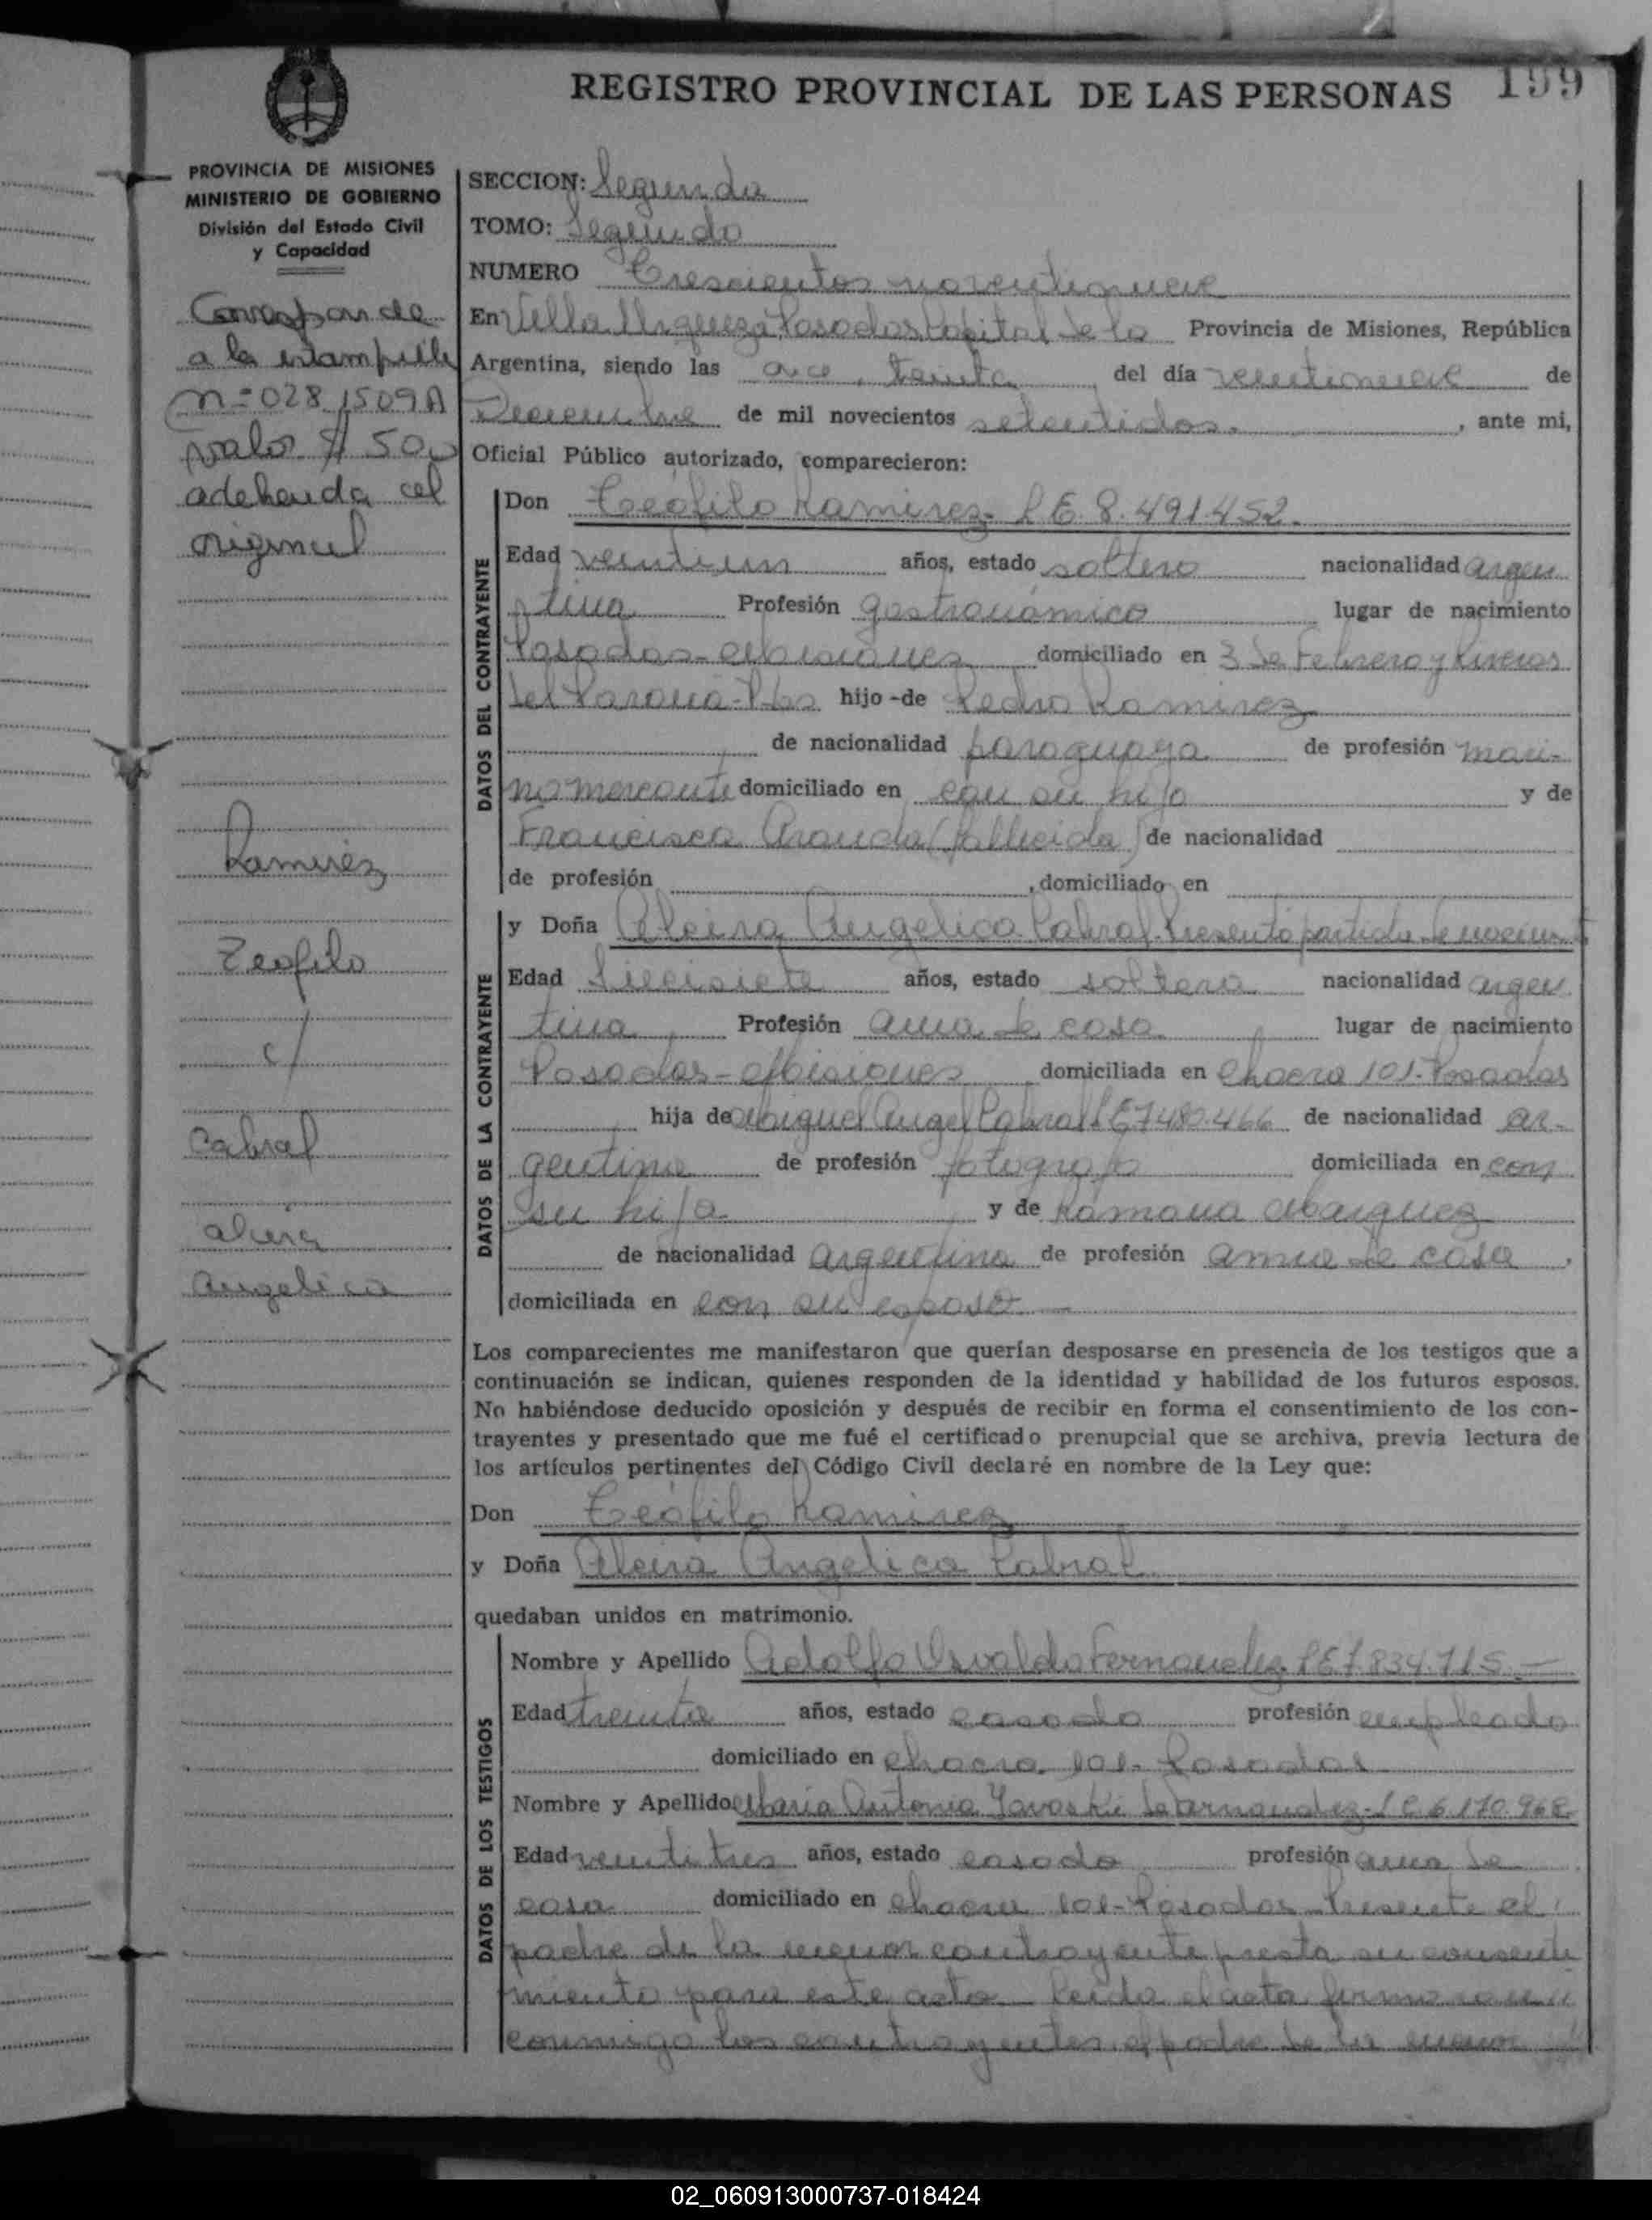 199
REGISTRO PROVINCIAL DE LAS PERSONAS
PROVINCIA DE MISIONES
MINISTERIO DE GOBIERNO
División del Estado Civil
y Capacidad
Corresponde
a la estampilla
n=028 1509A
valor $ 50,00
adeherida al
original
Ramirez
Teofilo
c/
Cabral
Alcira
Angelica
SECCION: Segunda
TOMO: Segundo
NUMERO Trescientos noventinueve
En Villa Urquiza Posadas Capital de la Provincia de Misiones, República
Argentina, siendo las once, treinta del día veintinueve de
Diciembre de mil novecientos setentidos. , ante mi,
Oficial Público autorizado, comparecieron:
DATOS DEL CONTRAYENTE
Don Teófilo Ramirez- L E 8.491.452.
Edad veintiun años, estado soltero nacionalidad argen
tina Profesión gastronómico lugar de nacimiento
Posadas-Misiones domiciliado en 3 de Febrero y Riveras
del Paraná-Pdas hijo-de Pedro Ramirez
de nacionalidad paraguaya de profesión mari-
no mercante domiciliado en con su hijo y de
Francisca Aranda (fallecida) de nacionalidad
de profesión , domiciliado en
DATOS DE LA CONTRAYENTE
y Doña Alcira Angelica Cabral-Presento partida de nacim
Edad diecisiete años, estado soltera nacionalidad argen
tina Profesión ama de casa lugar de nacimiento
Posadas-Misiones domiciliada en Chacra 101-Posadas
hija de Miguel Angel Cabral LE 7480.466 de nacionalidad ar-
gentina de profesión fotografo domiciliada en con
su hija y de Ramona Marquez
de nacionalidad argentina de profesión ama de casa ,
domiciliada en con su esposo
Los comparecientes me manifestaron que querían desposarse en presencia de los testigos que a
continuación se indican, quienes responden de la identidad y habilidad de los futuros esposos.
No habiéndose deducido oposición y después de recibir en forma el consentimiento de los con-
trayentes y presentado que me fué el certificado prenupcial que se archiva, previa lectura de
los artículos pertinentes del Código Civil declaré en nombre de la Ley que:
Don Teófilo Ramirez
y Doña Alcira Angelica Cabral
quedaban unidos en matrimonio.
DATOS DE LOS TESTIGOS
Nombre y Apellido Adolfo Osvaldo Fernandez LE 7.834.715-
Edad treinta años, estado casado profesión empleado
domiciliado en chacra 101-Posadas
Nombre y Apellido Maria Antonia Yavoski de Fernandez-LC 6.170.968
Edad veintitres años, estado casada profesión ama de
casa domiciliado en chacra 101-Posadas-Presente el
padre de la menor contrayente presta su consenti
miento para este acto Leida el acta firmaron
conmigo los contrayentes, el padre de la menor
02_060913000737-018424